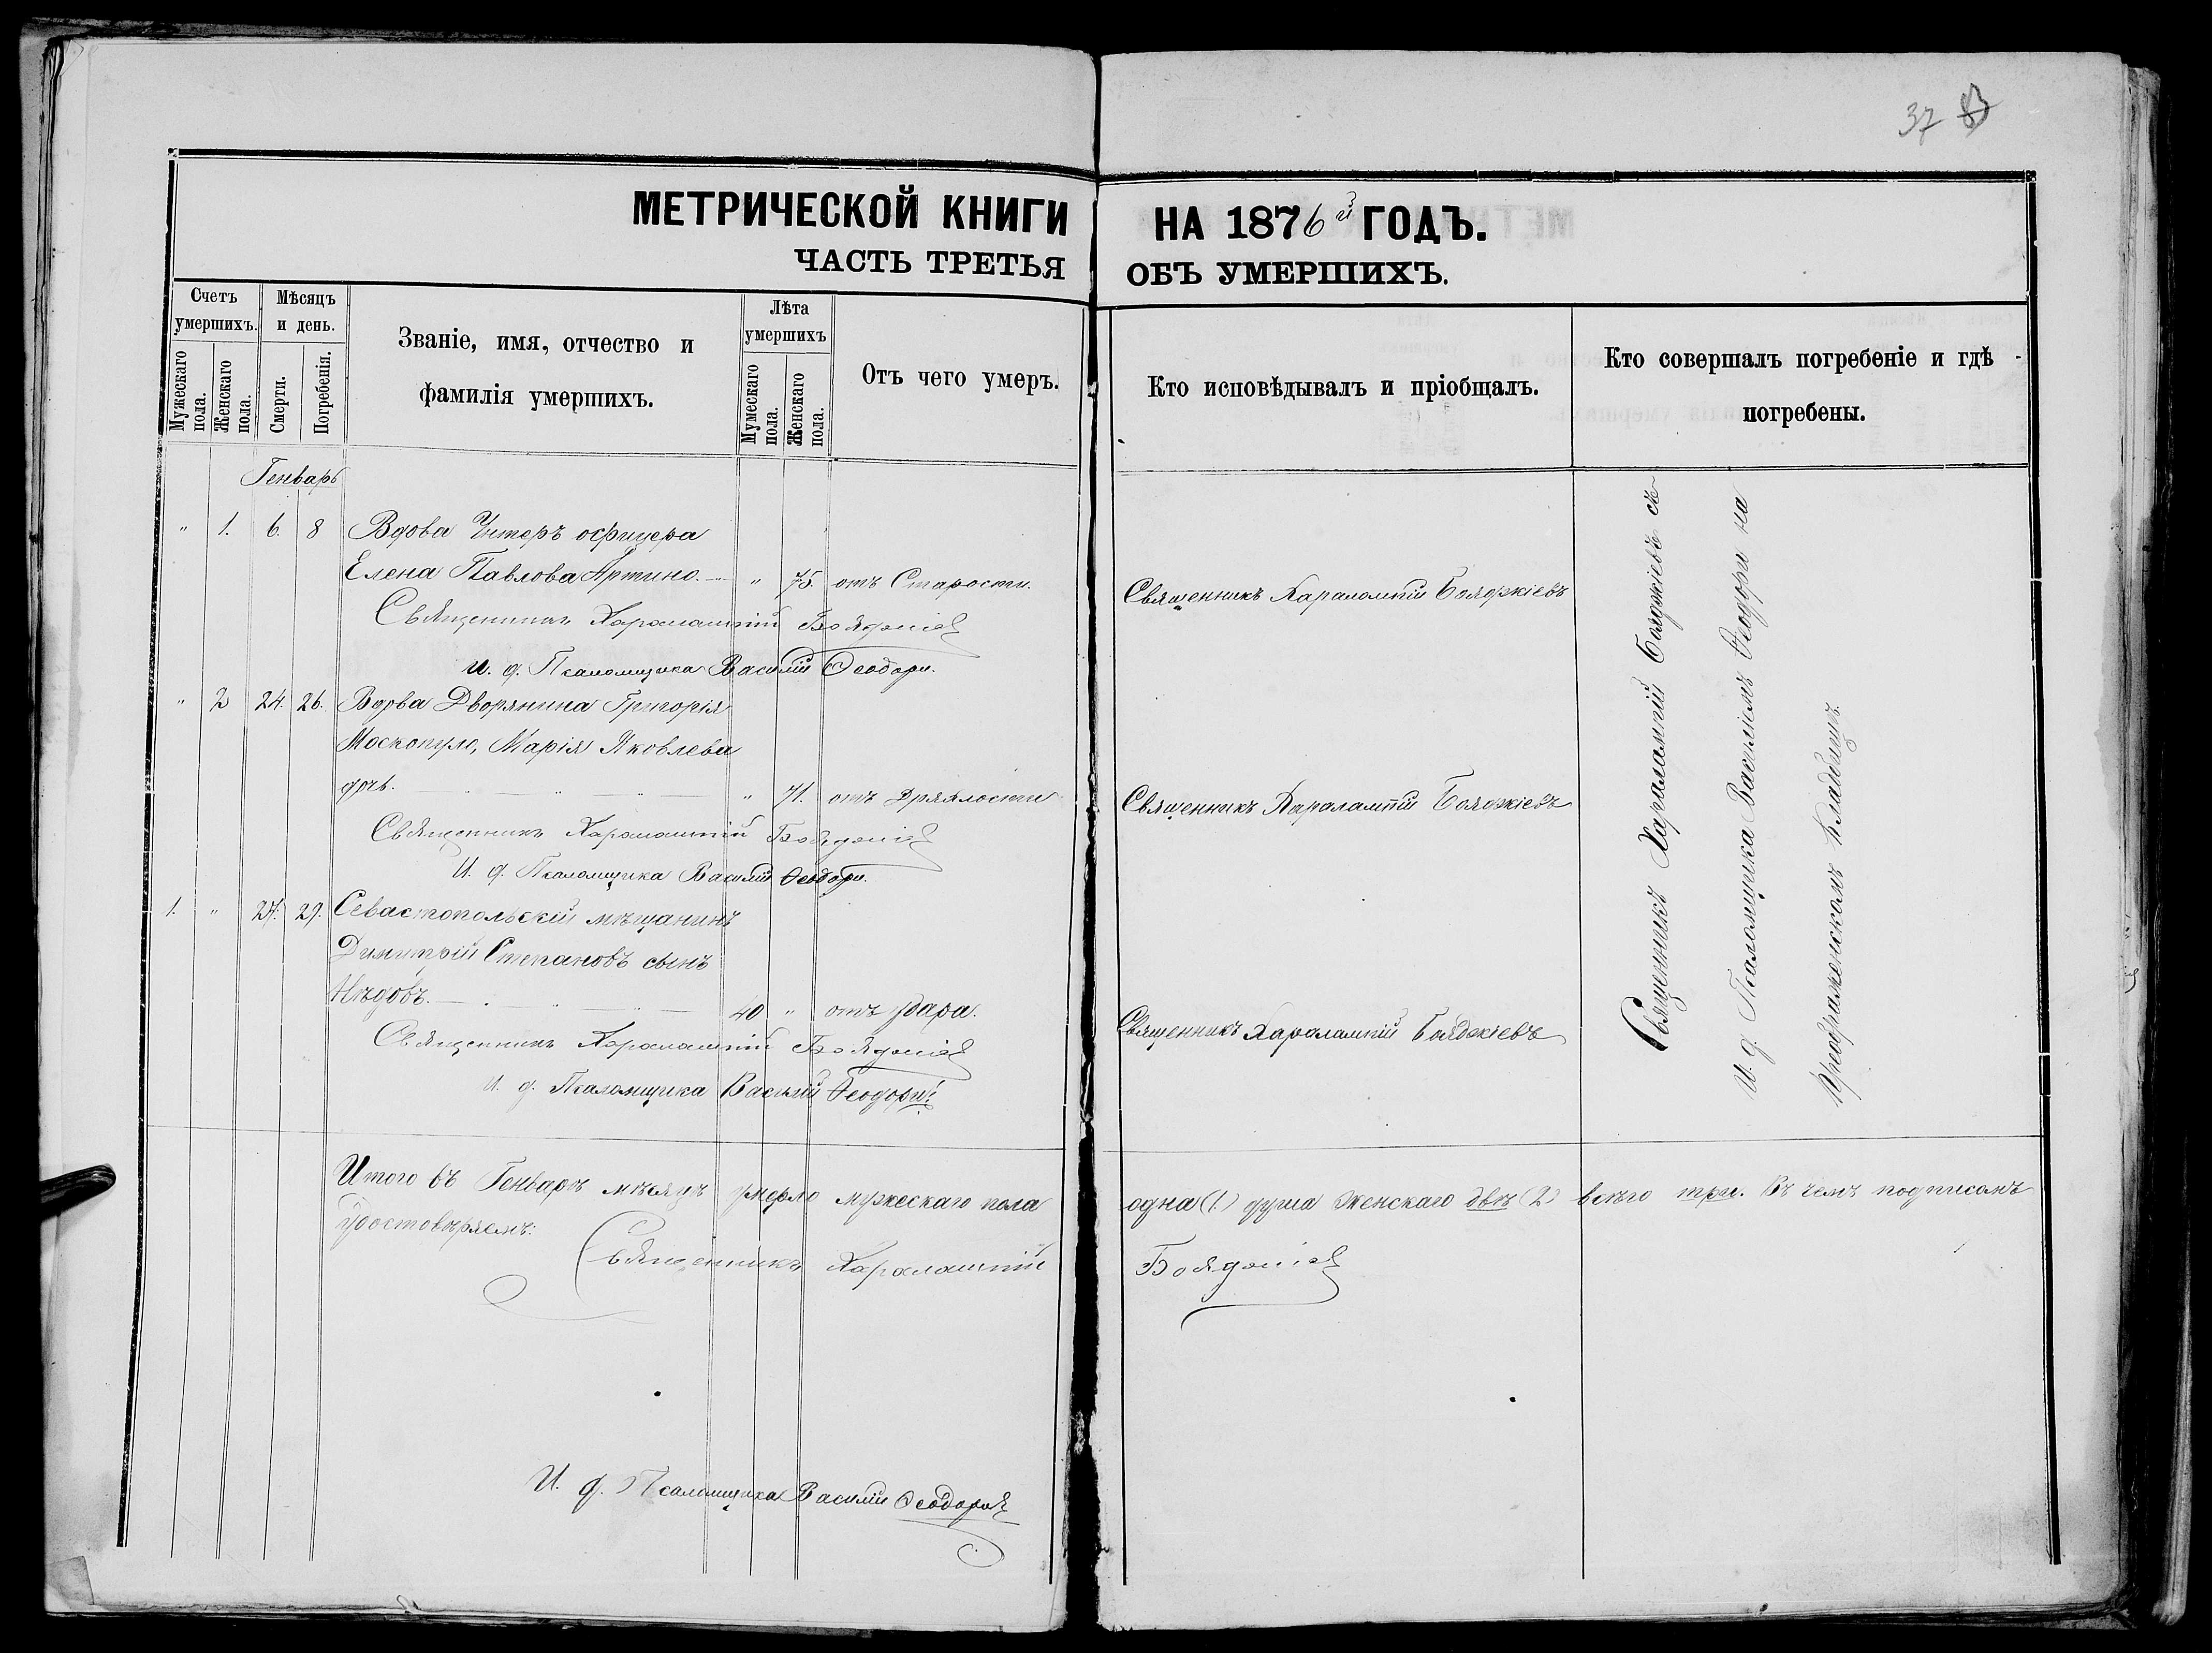 37 83
МЕТРИЧЕСКОЙ КНИГИ НА 1876й ГОДЪ.
ЧАСТЬ ТРЕТЬЯ ОБЪ УМЕРШИХЪ.
Счетъ умершихъ.
Мужескаго пола.
Женскаго пола.
Мѣсяцъ и день.
Смерти.
Погребенія.
Званіе, имя, отчество и
фамилія умершихъ.
Лѣта умершихъ
Мужескаго пола.
Женскаго пола.
Отъ чего умеръ.
Кто исповѣдывалъ и пріобщалъ.
Кто совершалъ погребеніе и гдѣ
погребены.
Генварь
" 1. 6. 8 Вдова Унтеръ офицера
Елена Павлова Артино. " 75. отъ Старости. Священникъ Харалампій Бояджіевъ
Священникъ Харалампій Бояджіев
И. д. Псаломщика Василій Ѳеодори.
" 2 24. 26. Вдова Дворянина Григорія
Москопуло, Марія Яковлева
дочь. " 71. отъ Дряхлости Священникъ Харалампій Бояджіевъ
Священникъ Харалампій Бояджіев
И. д. Псаломщика Василій Ѳеодори.
1. " 27. 29. Севастопольскій мѣщанинъ
Димитрій Степановъ сынъ
Нѣдовъ. 40 " отъ удара. Священникъ Харалампій Бояджіевъ
Священникъ Харалампій Бояджіев
И. д. Псаломщика Василій Ѳеодори.
Священникъ Харалампій Бояджіевъ съ
И. д. Псаломщика Василіемъ Ѳеодори на
Преображенскомъ кладбищѣ.
Итого въ Генварѣ мѣсяцѣ умерло мужескаго пола одна (1.) душа Женскаго двѣ (2) всего три. Въ чемъ подписомъ
удостовѣряемъ:
Священникъ Харалампій Бояджіев
И. д. Псаломщика Василій Ѳеодори